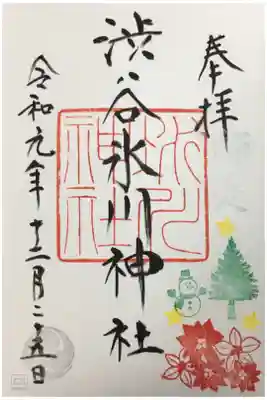 奉拝
渋谷氷川神社
氷川神社
令和元年十二月二十五日